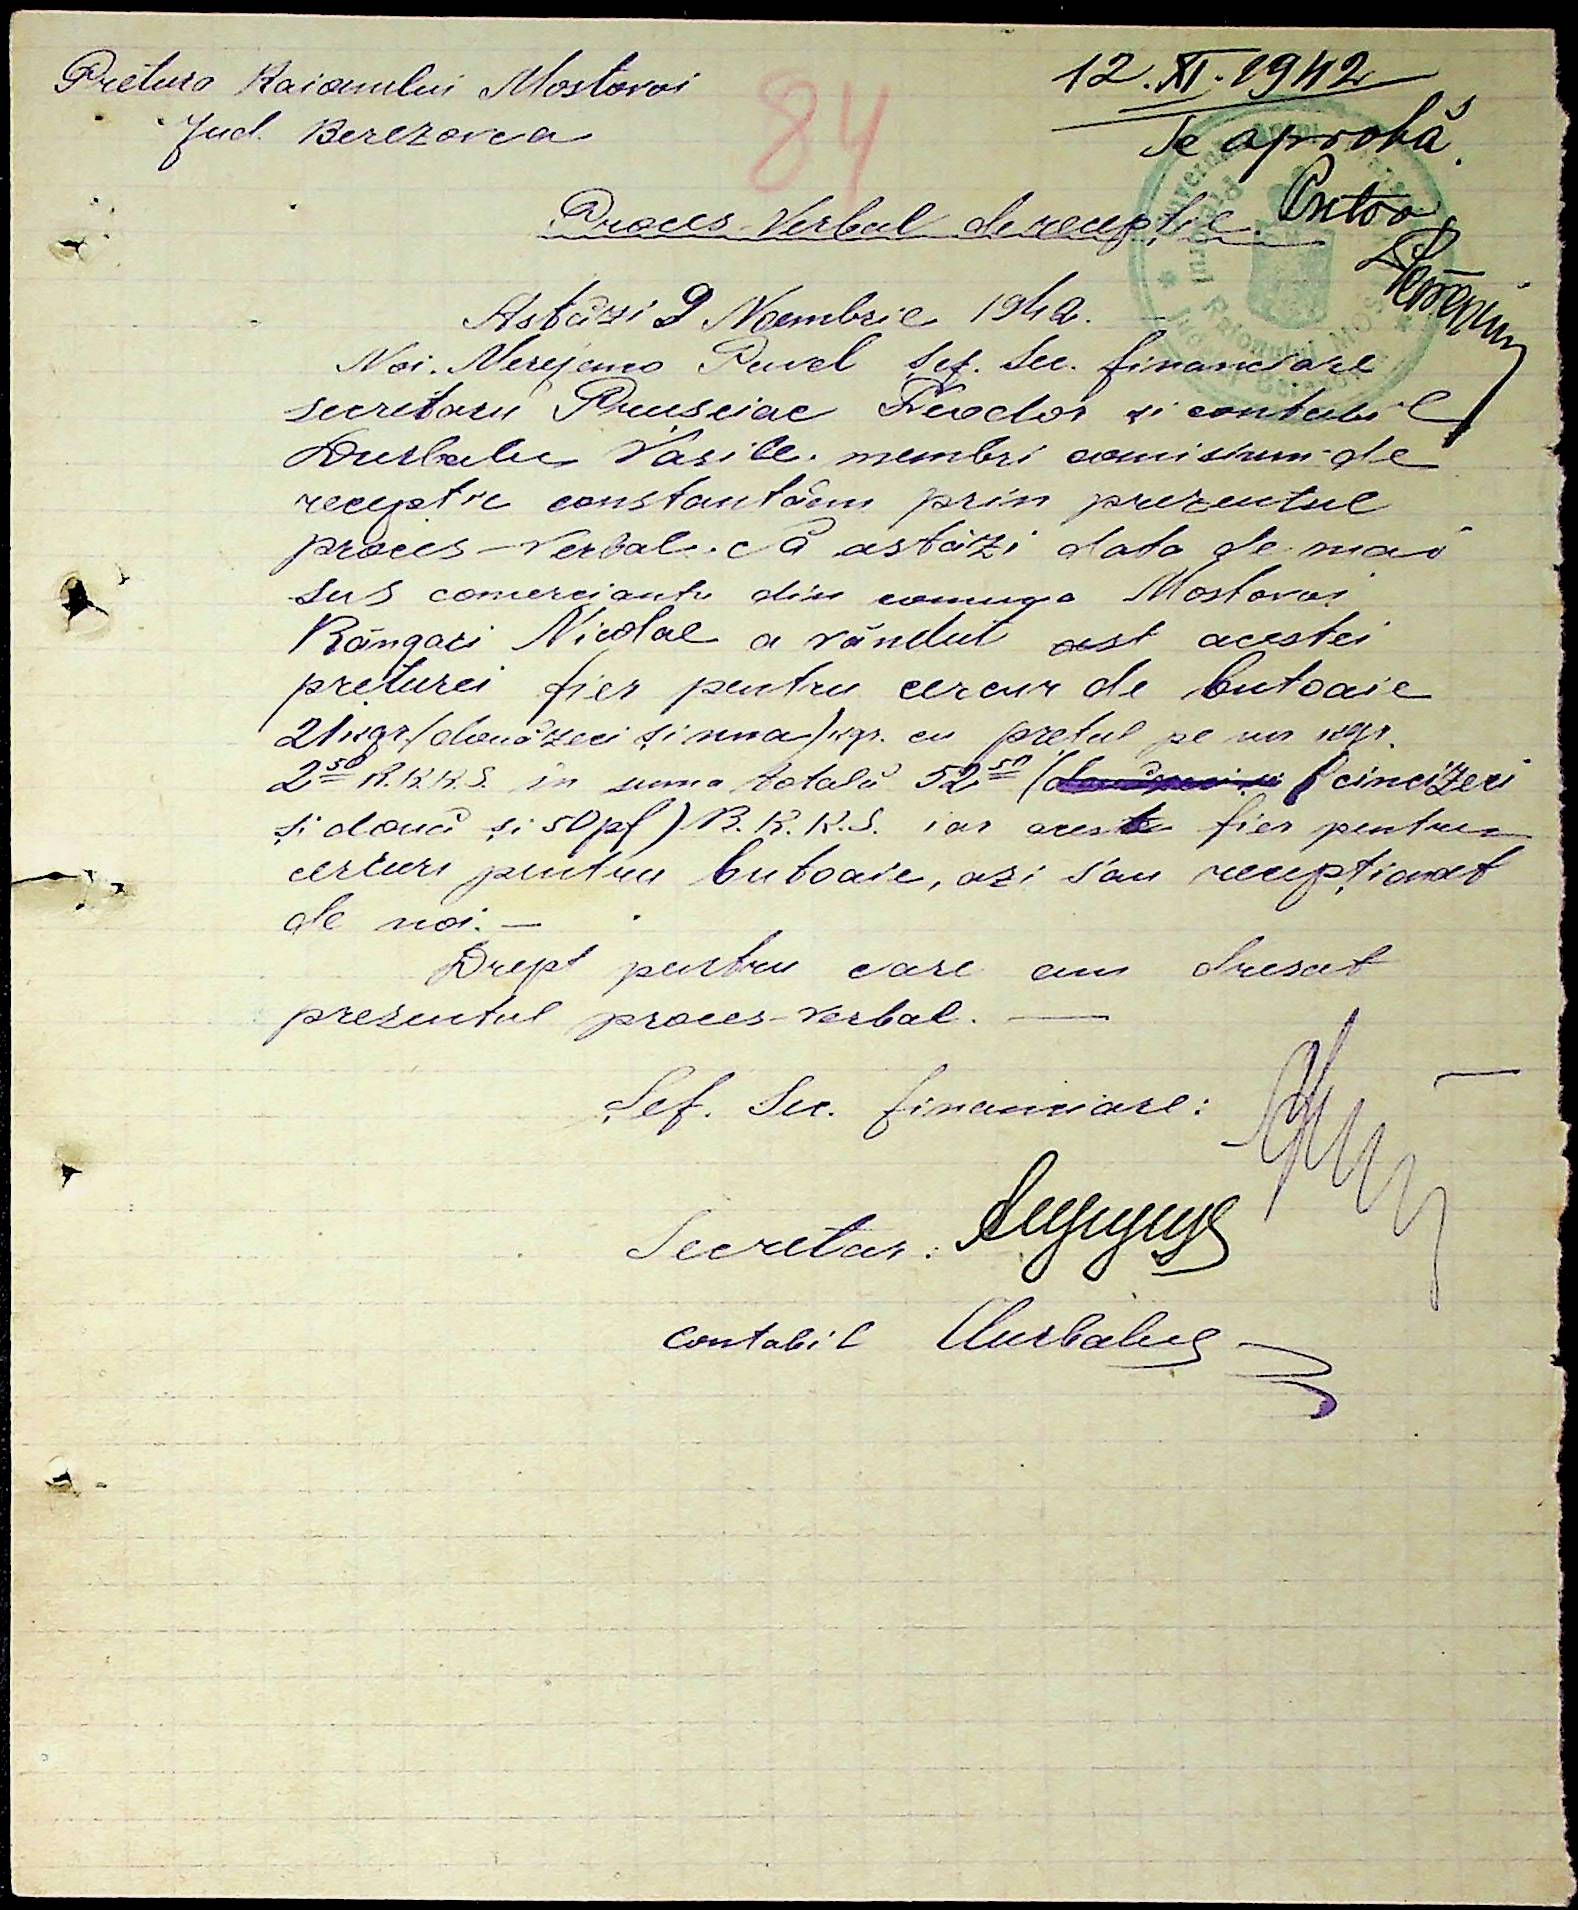 Pretura Raionului Mostovoi
Jud. Berezovca
84
12.XI.1942
Se aprobă.
Proces-Verbal de recepție.
Astăzi 9 Noembrie 1942.
Noi. Merejanco Pavel șef. Sec. financiare
secretaru Prusciac Feodor și contabil
Durbalu Vasile. membri comisiuni de
recepție constantăm prin prezentul
proces-verbal. că astăzi data de mai
sus comerciantu din comuna Mostovoi
Răngaci Nicolae a vândut acestei
preturei fier pentru cercur de butoaie
21 kgr/douăzeci și una/kgr. cu prețul pe un kgr.
2 50 R.K.K.S. în suma totală 52 50 (cincizeci
și două și 50 pf) R.K.K.S. iar acest fier pentru
cercuri pentru butoaie, azi s'au recepționat
de noi. —
Drept pentru care am dresat
prezentul proces-verbal. —
Șef. Sec. financiare:
Secretar:
contabil Durbalu